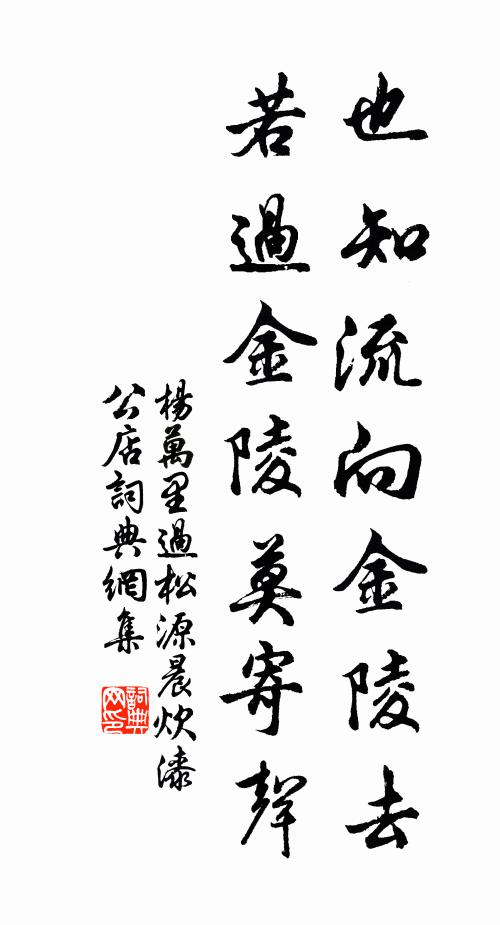 也知流向金陵去
若過金陵莫寄聲
楊萬里過松源晨炊漆
公店詞典網集
詞典
网印